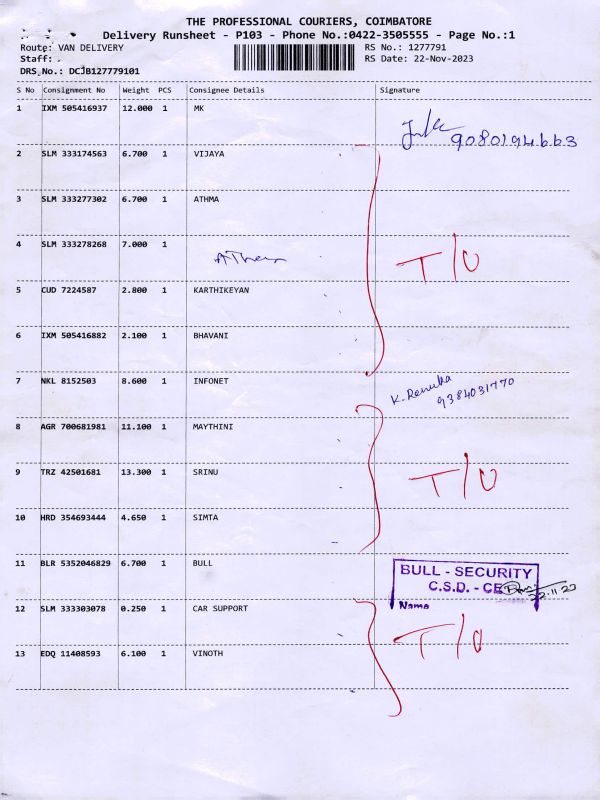 THE PROFESSIONAL COURIERS, COIMBATORE
Delivery Runsheet - P103 - Phone No.:0422-3505555 - Page No.:1
Route: VAN DELIVERY RS No.: 1277791
Staff: . RS Date: 22-Nov-2023
DRS No.: DCJB127779101
S No Consignment No Weight PCS Consignee Details Signature
1 IXM 505416937 12.000 1 MK
9080194663
2 SLM 333174563 6.700 1 VIJAYA
3 SLM 333277302 6.700 1 ATHMA
4 SLM 333278268 7.000 1
T/O
5 CUD 7224587 2.800 1 KARTHIKEYAN
6 IXM 505416882 2.100 1 BHAVANI
7 NKL 8152503 8.600 1 INFONET K. Renuka
9384031770
8 AGR 700681981 11.100 1 MAYTHINI
9 TRZ 42501681 13.300 1 SRINU T/O
10 HRD 354693444 4.650 1 SIMTA
11 BLR 5352046829 6.700 1 BULL BULL - SECURITY
C.S.D. - CE
22.11.23
Name
12 SLM 333303078 0.250 1 CAR SUPPORT
T/O
13 EDQ 11408593 6.100 1 VINOTH